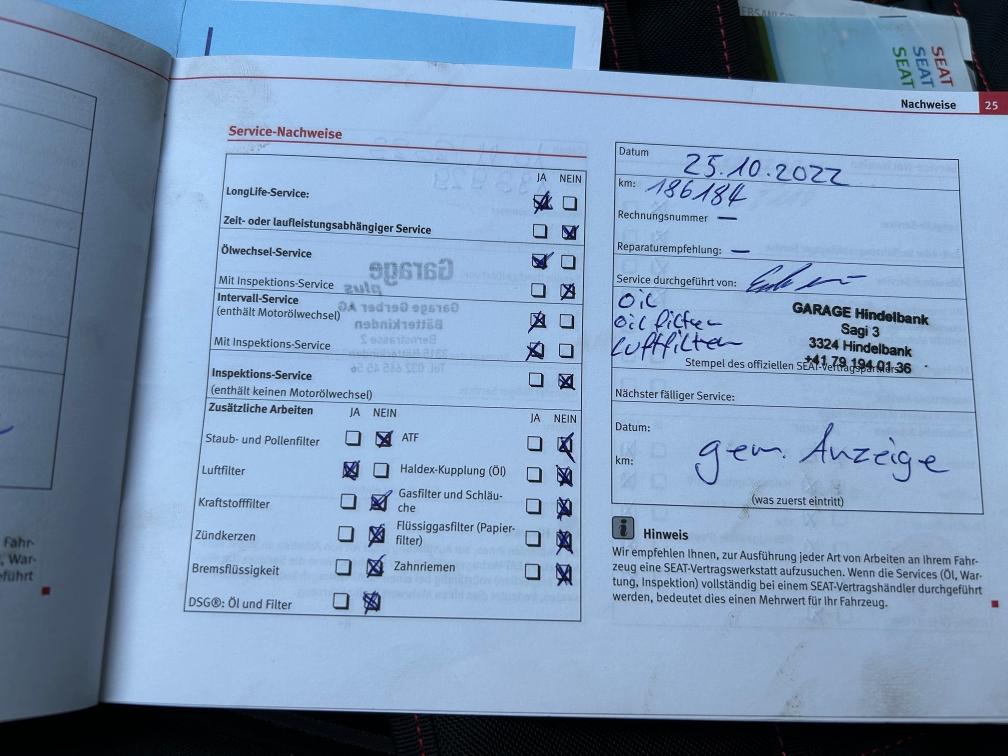 EBSANLEIT
SEAT
SEAT
SEAT
Nachweise 25
Service-Nachweise
JA NEIN
LongLife-Service:
Zeit- oder laufleistungsabhängiger Service
Ölwechsel-Service
Mit Inspektions-Service
Intervall-Service
(enthält Motorölwechsel)
Mit Inspektions-Service
Inspektions-Service
(enthält keinen Motorölwechsel)
Zusätzliche Arbeiten JA NEIN JA NEIN
Staub- und Pollenfilter ATF
Luftfilter Haldex-Kupplung (Öl)
Kraftstofffilter Gasfilter und Schläu-
che
Zündkerzen Flüssiggasfilter (Papier-
filter)
Bremsflüssigkeit Zahnriemen
DSG®: Öl und Filter
Datum 25.10.2022
km: 186184
Rechnungsnummer —
Reparaturempfehlung: —
Service durchgeführt von:
Oil
Oil filter
Luftfilter
GARAGE Hindelbank
Sagi 3
3324 Hindelbank
+41 79 194 01 36
Stempel des offiziellen SEAT-Vertragspartners
Nächster fälliger Service:
Datum:
km: gem. Anzeige
(was zuerst eintritt)
Hinweis
Wir empfehlen Ihnen, zur Ausführung jeder Art von Arbeiten an Ihrem Fahr-
zeug eine SEAT-Vertragswerkstatt aufzusuchen. Wenn die Services (Öl, War-
tung, Inspektion) vollständig bei einem SEAT-Vertragshändler durchgeführt
werden, bedeutet dies einen Mehrwert für Ihr Fahrzeug.
Fahr-
War-
eführt
Garage
plus
Garage Gerber AG
Bätterkinden
Bernstrasse 2
Tel. 032 665 45 56